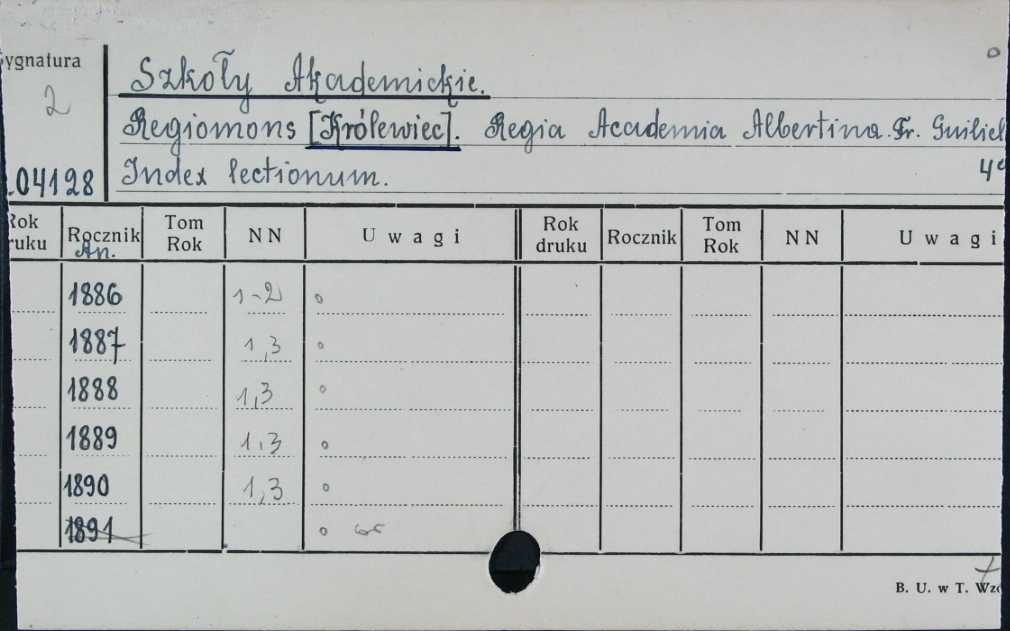 ygnatura
2
04128
Szkoły Akademickie.
Regiomons [Królewiec]. Regia Academia Albertina. Fr. Guiliel
Index lectionum. 4°
Rok druku Rocznik An. Tom Rok NN Uwagi Rok druku Rocznik Tom Rok NN Uwagi
1886 1-2 o
1887 1,3 o
1888 1,3 o
1889 1,3 o
1890 1,3 o
1891 o
B. U. w T. Wzó